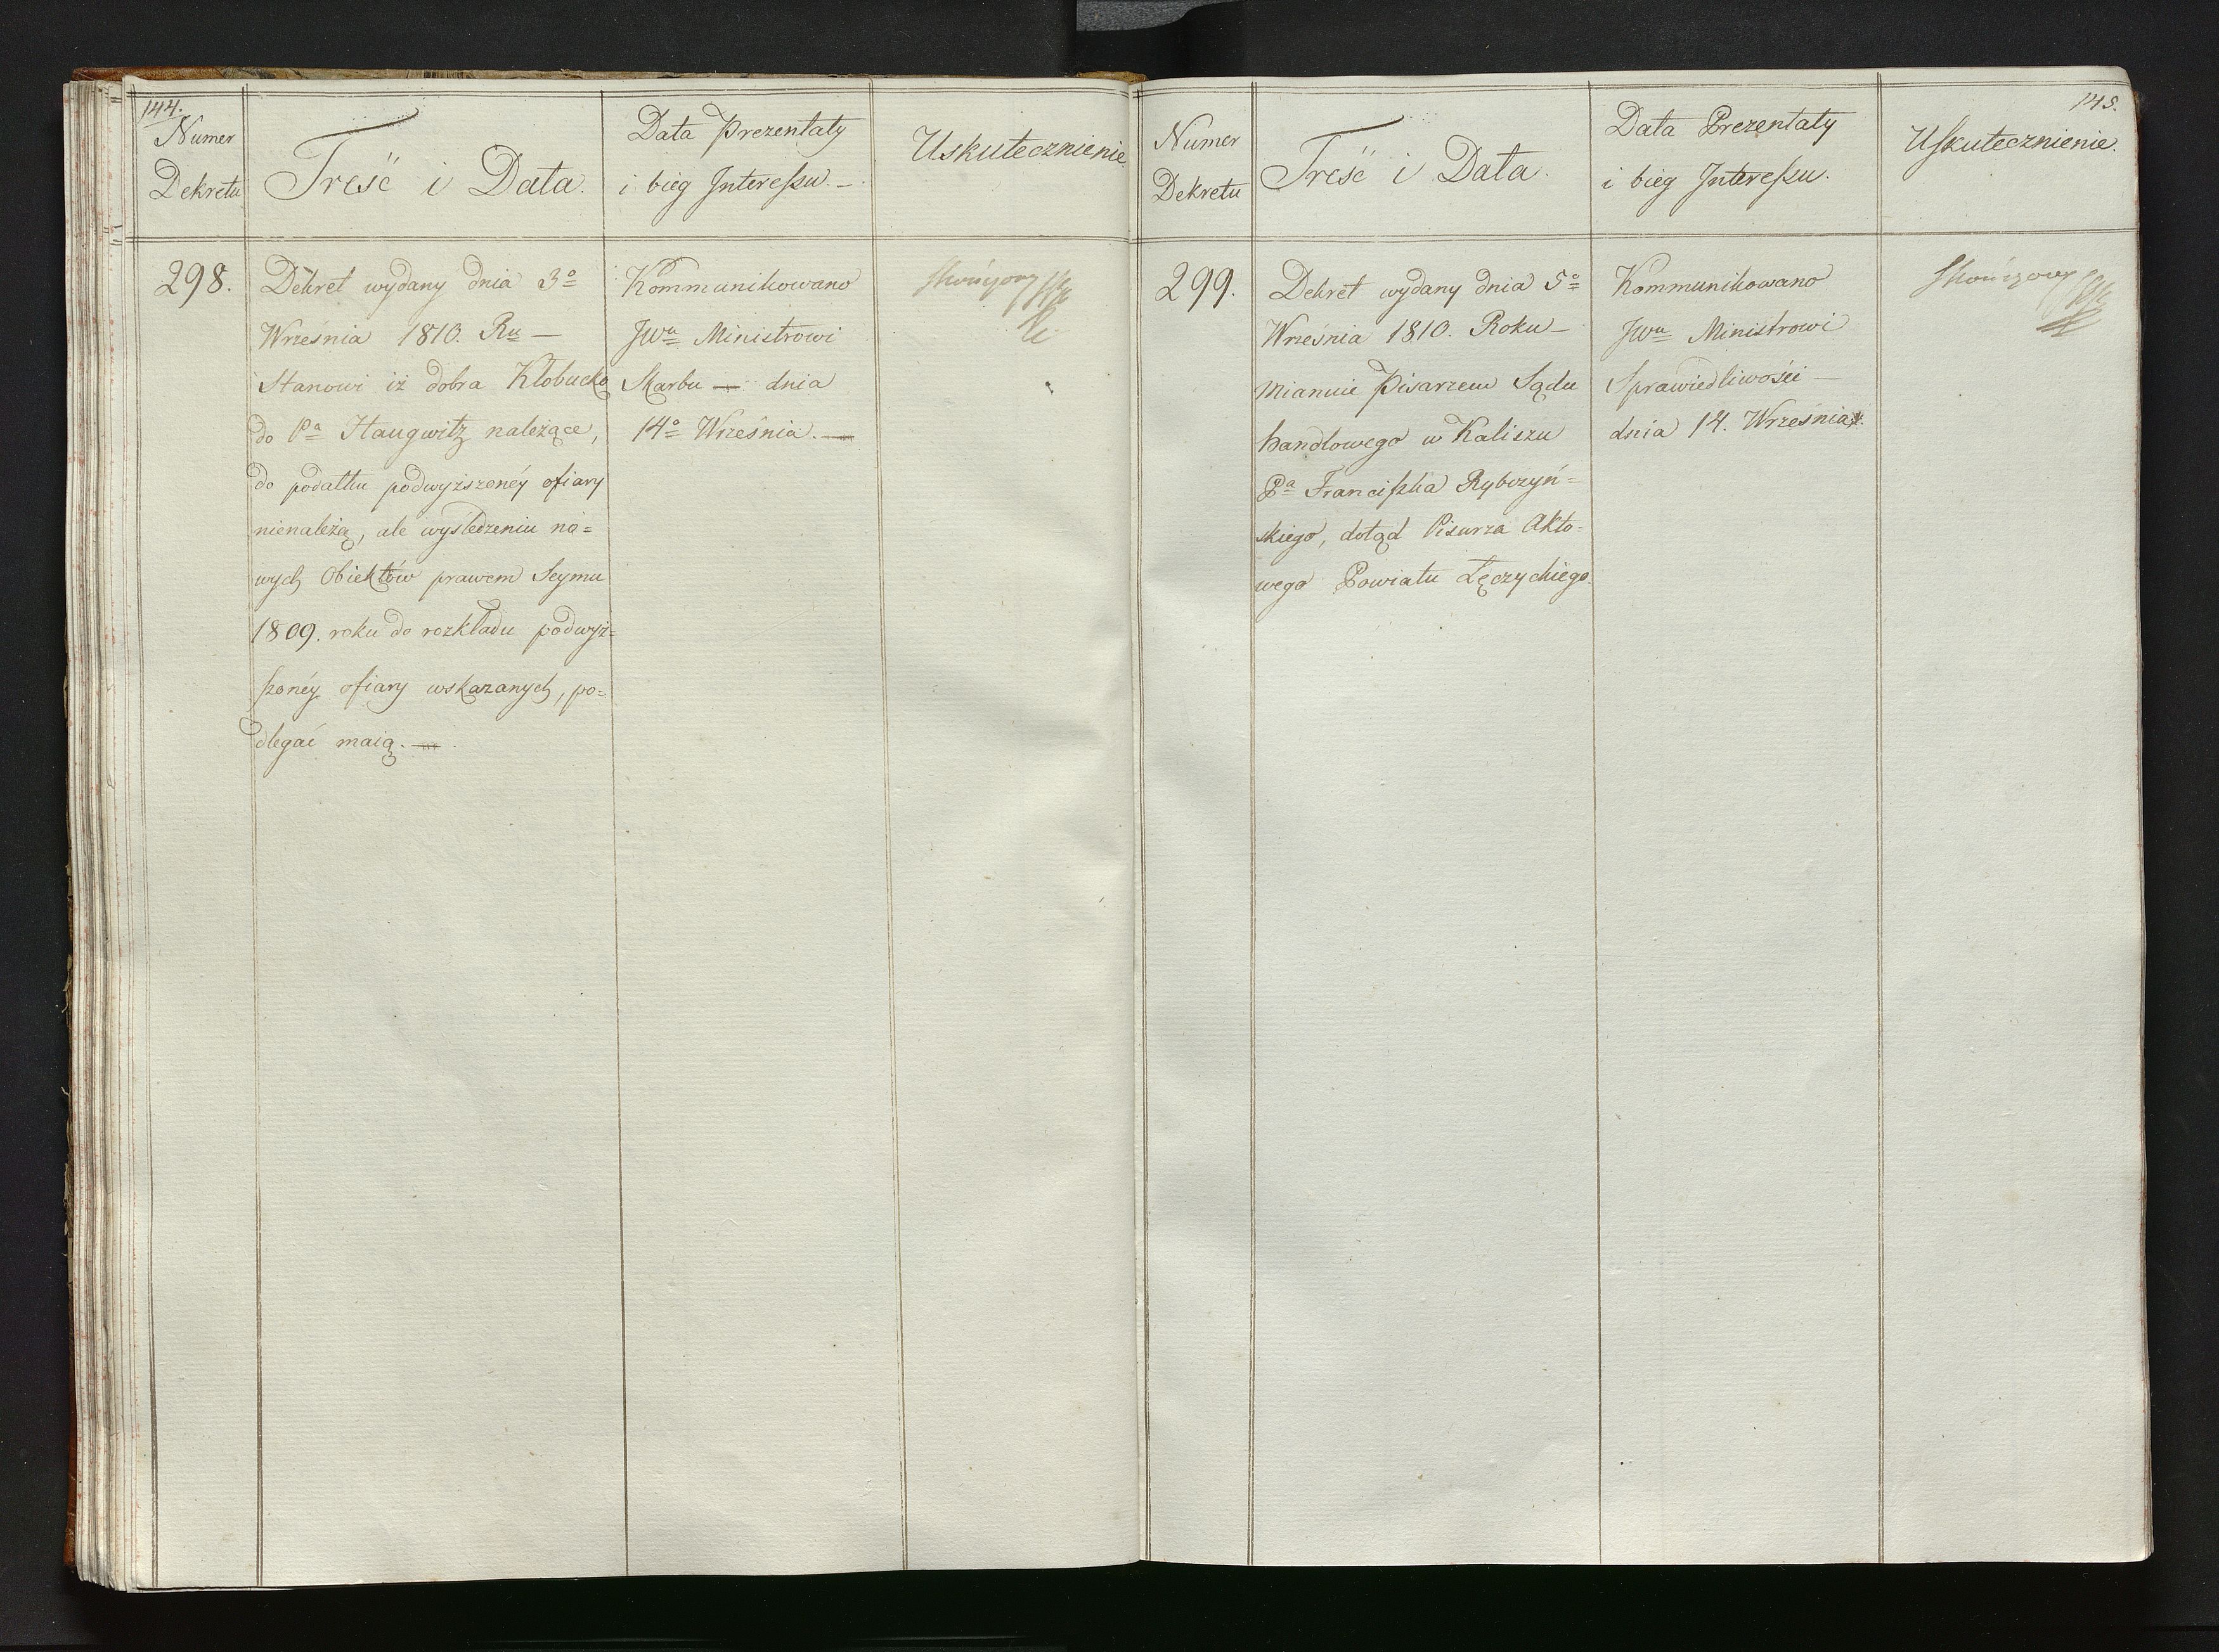 144.
Numer
Dekretu
Treść i Data.
Data Prezentaty
i bieg Interessu. –
Uskutecznienie
298.
Dekret wydany dnia 3º
Września 1810. Ru –
Stanowi iż dobra Kłobucko
do Pa Haugwitz należące,
do podatku podwyższonéy ofiary
nienależą, ale wyśledzeniu no=
wych Obiektów prawem Seymu
1809. roku do rozkładu podwyż=
szonéy ofiary wskazanych, po=
dlegać maią. —
Kommunikowano
JWu Ministrowi
Skarbu — dnia
14º Września. —
Skończony
145.
Numer
Dekretu
Treść i Data.
Data Prezentaty
i bieg Interessu.
Uskutecznienie.
299.
Dekret wydany dnia 5º
Września 1810. Roku –
Mianuie Pisarzem Sądu
handlowego w Kaliszu
Pa Franciszka Rybczyń=
skiego, dotąd Pisarza Akto=
wego Powiatu Łęczyckiego.
Kommunikowano
JWu Ministrowi
Sprawiedliwości –
dnia 14. Września
Skończony